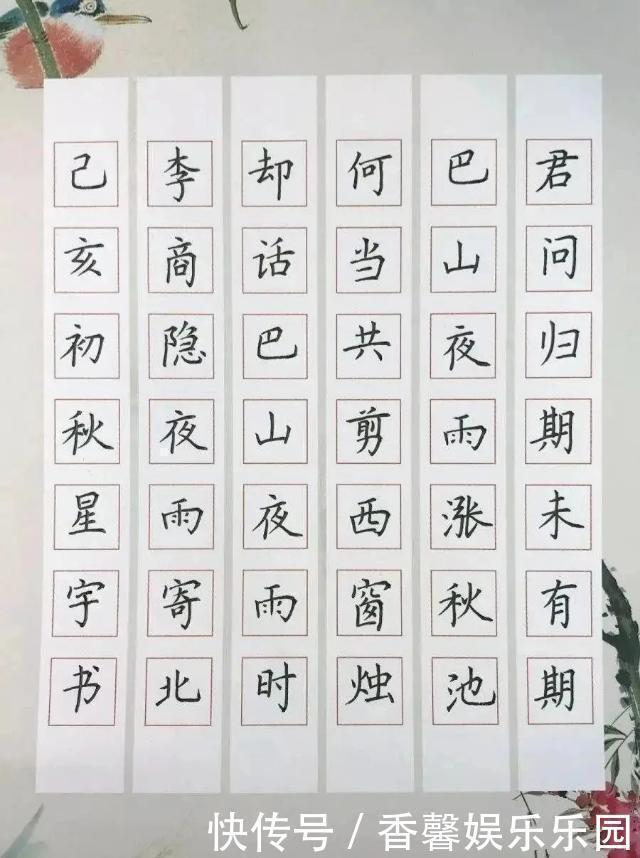 君问归期未有期
巴山夜雨涨秋池
何当共剪西窗烛
却话巴山夜雨时
李商隐夜雨寄北
己亥初秋星宇书
快传号/香馨娱乐乐园